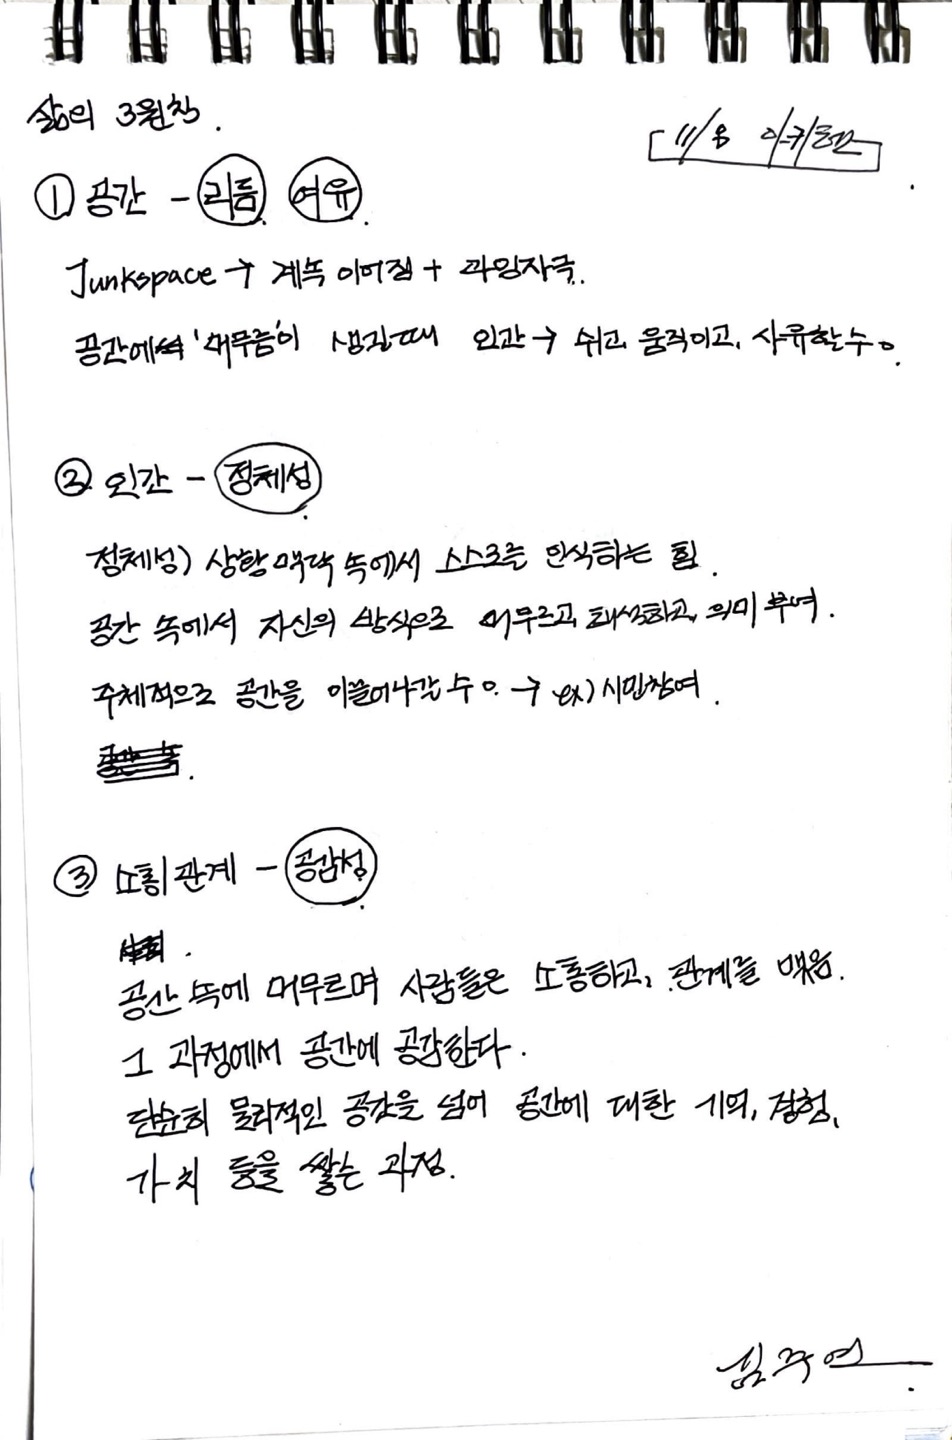 삶의 3원칙.
11/8
① 공간 - 리듬 여유
Junkspace → 계속 이어짐 + 과잉자극.
공간에서 '머무름'이 생길 때 인간 → 쉬고, 움직이고, 사유할 수 o.
② 인간 - 정체성
정체성) 상황 맥락 속에서 스스로를 인식하는 힘.
공간 속에서 자신의 방식으로 머무르고, 해석하고, 의미 부여.
주체적으로 공간을 이끌어나갈 수 o. → ex) 시민참여.
③ 소통 관계 - 공감성
공간 속에 머무르며 사람들은 소통하고, 관계를 맺음.
그 과정에서 공간에 공감한다.
단순히 물리적인 공간을 넘어 공간에 대한 기억, 경험,
가치 등을 쌓는 과정.